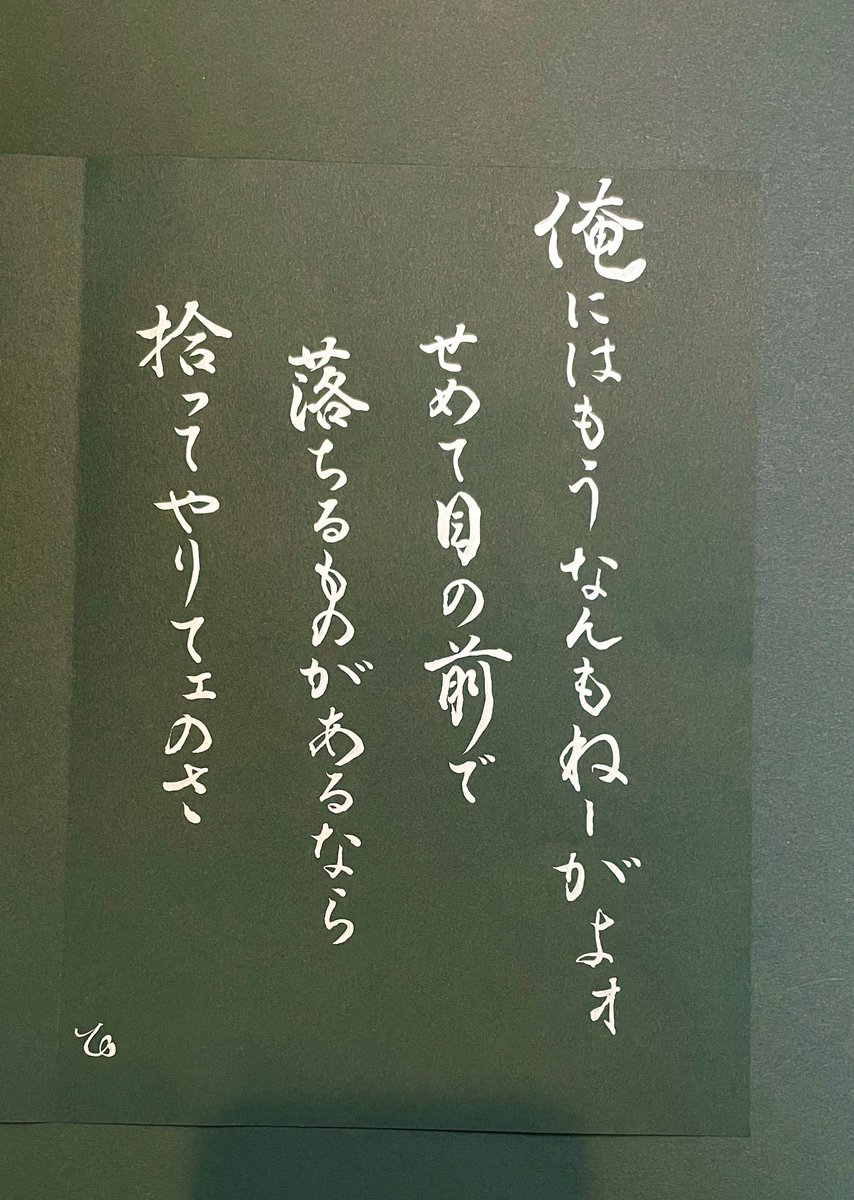 俺にはもうなんもねーがよォ
せめて目の前で
落ちるものがあるなら
拾ってやりてェのさ